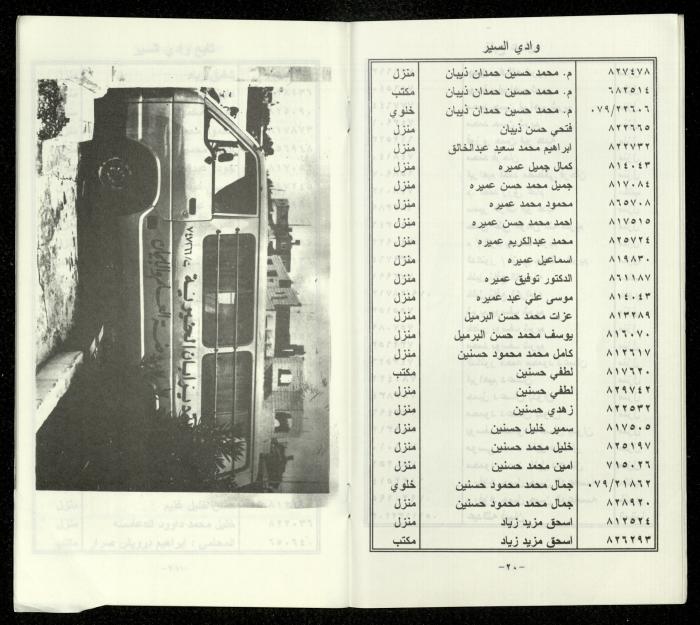 وادي السير
م. محمد حسين حمدان ذيبان منزل ٨٢٧٤٧٨
م. محمد حسين حمدان ذيبان مكتب ٦٨٢٥١٤
م. محمد حسين حمدان ذيبان خلوي ٠٧٩/٢٢٦٠٦
فتحي حسن ذيبان منزل ٨٢٢٦٦٥
ابراهيم محمد سعيد عبدالخالق منزل ٨٢٢٧٣٢
كمال جميل عميره منزل ٨١٤٠٤٣
جميل محمد حسن عميره منزل ٨١٧٠٨٤
محمود محمد عميره منزل ٨٦٥٧٠٨
احمد محمد حسن عميره منزل ٨١٧٥١٥
محمد عبدالكريم عميره منزل ٨٢٥٧٢٤
اسماعيل عميره منزل ٨١٩٨٣٠
الدكتور توفيق عميره منزل ٨٦١١٨٧
موسى علي عبد عميره منزل ٨١٤٠٤٣
عزات محمد حسن البرميل منزل ٨١٣٢٨٩
يوسف محمد حسن البرميل منزل ٨١٦٠٧٠
كامل محمد محمود حسنين منزل ٨١٢٦١٧
لطفي حسنين مكتب ٨١٧٦٢٠
لطفي حسنين منزل ٨٢٩٧٤٢
زهدي حسنين منزل ٨٢٢٥٣٢
سمير خليل حسنين منزل ٨١٧٥٠٥
خليل محمد حسنين منزل ٨٢٥١٩٧
امين محمد حسنين منزل ٧١٥٠٢٦
جمال محمد محمود حسنين خلوي ٠٧٩/٢١٨٦٢
جمال محمد محمود حسنين منزل ٨٢٨٩٢٠
اسحق مزيد زياد منزل ٨١٢٥٢٤
اسحق مزيد زياد مكتب ٨٢٦٢٩٣
-٢٠-